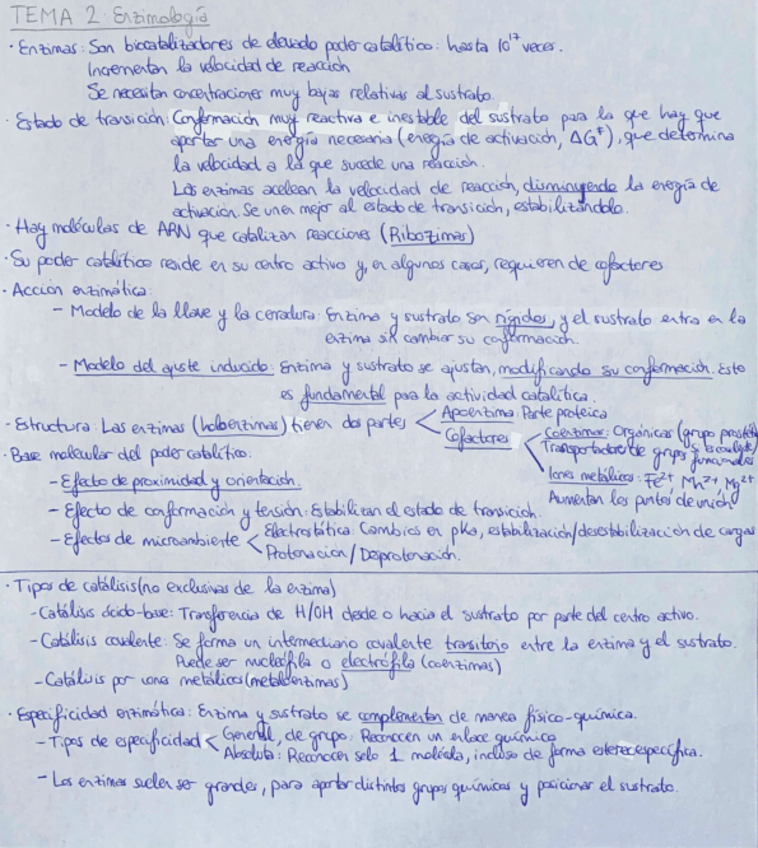 TEMA 2: Enzimología
· Enzimas: Son biocatalizadores de elevado poder catalítico: hasta 10¹⁷ veces.
Incrementan la velocidad de reacción
Se necesitan concentraciones muy bajas relativas al sustrato.
· Estado de transición: Conformación muy reactiva e inestable del sustrato para la que hay que
aportar una energía necesaria (energía de activación, ΔG‡), que determina
la velocidad a la que sucede una reacción.
Las enzimas aceleran la velocidad de reacción, disminuyendo la energía de
activación. Se unen mejor al estado de transición, estabilizándolo.
· Hay moléculas de ARN que catalizan reacciones (Ribozimas)
· Su poder catalítico reside en su centro activo y, en algunos casos, requieren de cofactores
· Acción enzimática:
– Modelo de la llave y la cerradura: Enzima y sustrato son rígidos, y el sustrato entra en la
enzima sin cambiar su conformación.
– Modelo del ajuste inducido: Enzima y sustrato se ajustan, modificando su conformación. Esto
es fundamental para la actividad catalítica.
· Estructura: Las enzimas (holoenzimas) tienen dos partes < Apoenzima: Parte proteica
Cofactores < Coenzimas: Orgánicas (grupo prostét
Transportadores de grupos funcionales
Iones metálicos: Fe²⁺ Mn²⁺, Mg²⁺
Aumentan los puntos de unión
· Base molecular del poder catalítico.
– Efecto de proximidad y orientación.
– Efecto de conformación y tensión: Estabilizan el estado de transición.
– Efectos de microambiente < Electrostática: Cambios en pKa, estabilización/desestabilización de cargas
Protonación / Desprotonación.
· Tipos de catálisis (no exclusivas de la enzima)
– Catálisis ácido-base: Transferencia de H/OH desde o hacia el sustrato por parte del centro activo.
– Catálisis covalente: Se forma un intermediario covalente transitorio entre la enzima y el sustrato.
Puede ser nucleófila o electrófila (coenzimas)
– Catálisis por iones metálicos (metaloenzimas)
· Especificidad enzimática: Enzima y sustrato se complementan de manera físico-química.
– Tipos de especificidad < General, de grupo: Reconocen un enlace químico
Absoluta: Reconocen solo 1 molécula, incluso de forma estereoespecífica.
– Las enzimas suelen ser grandes, para aportar distintos grupos químicos y posicionar el sustrato.